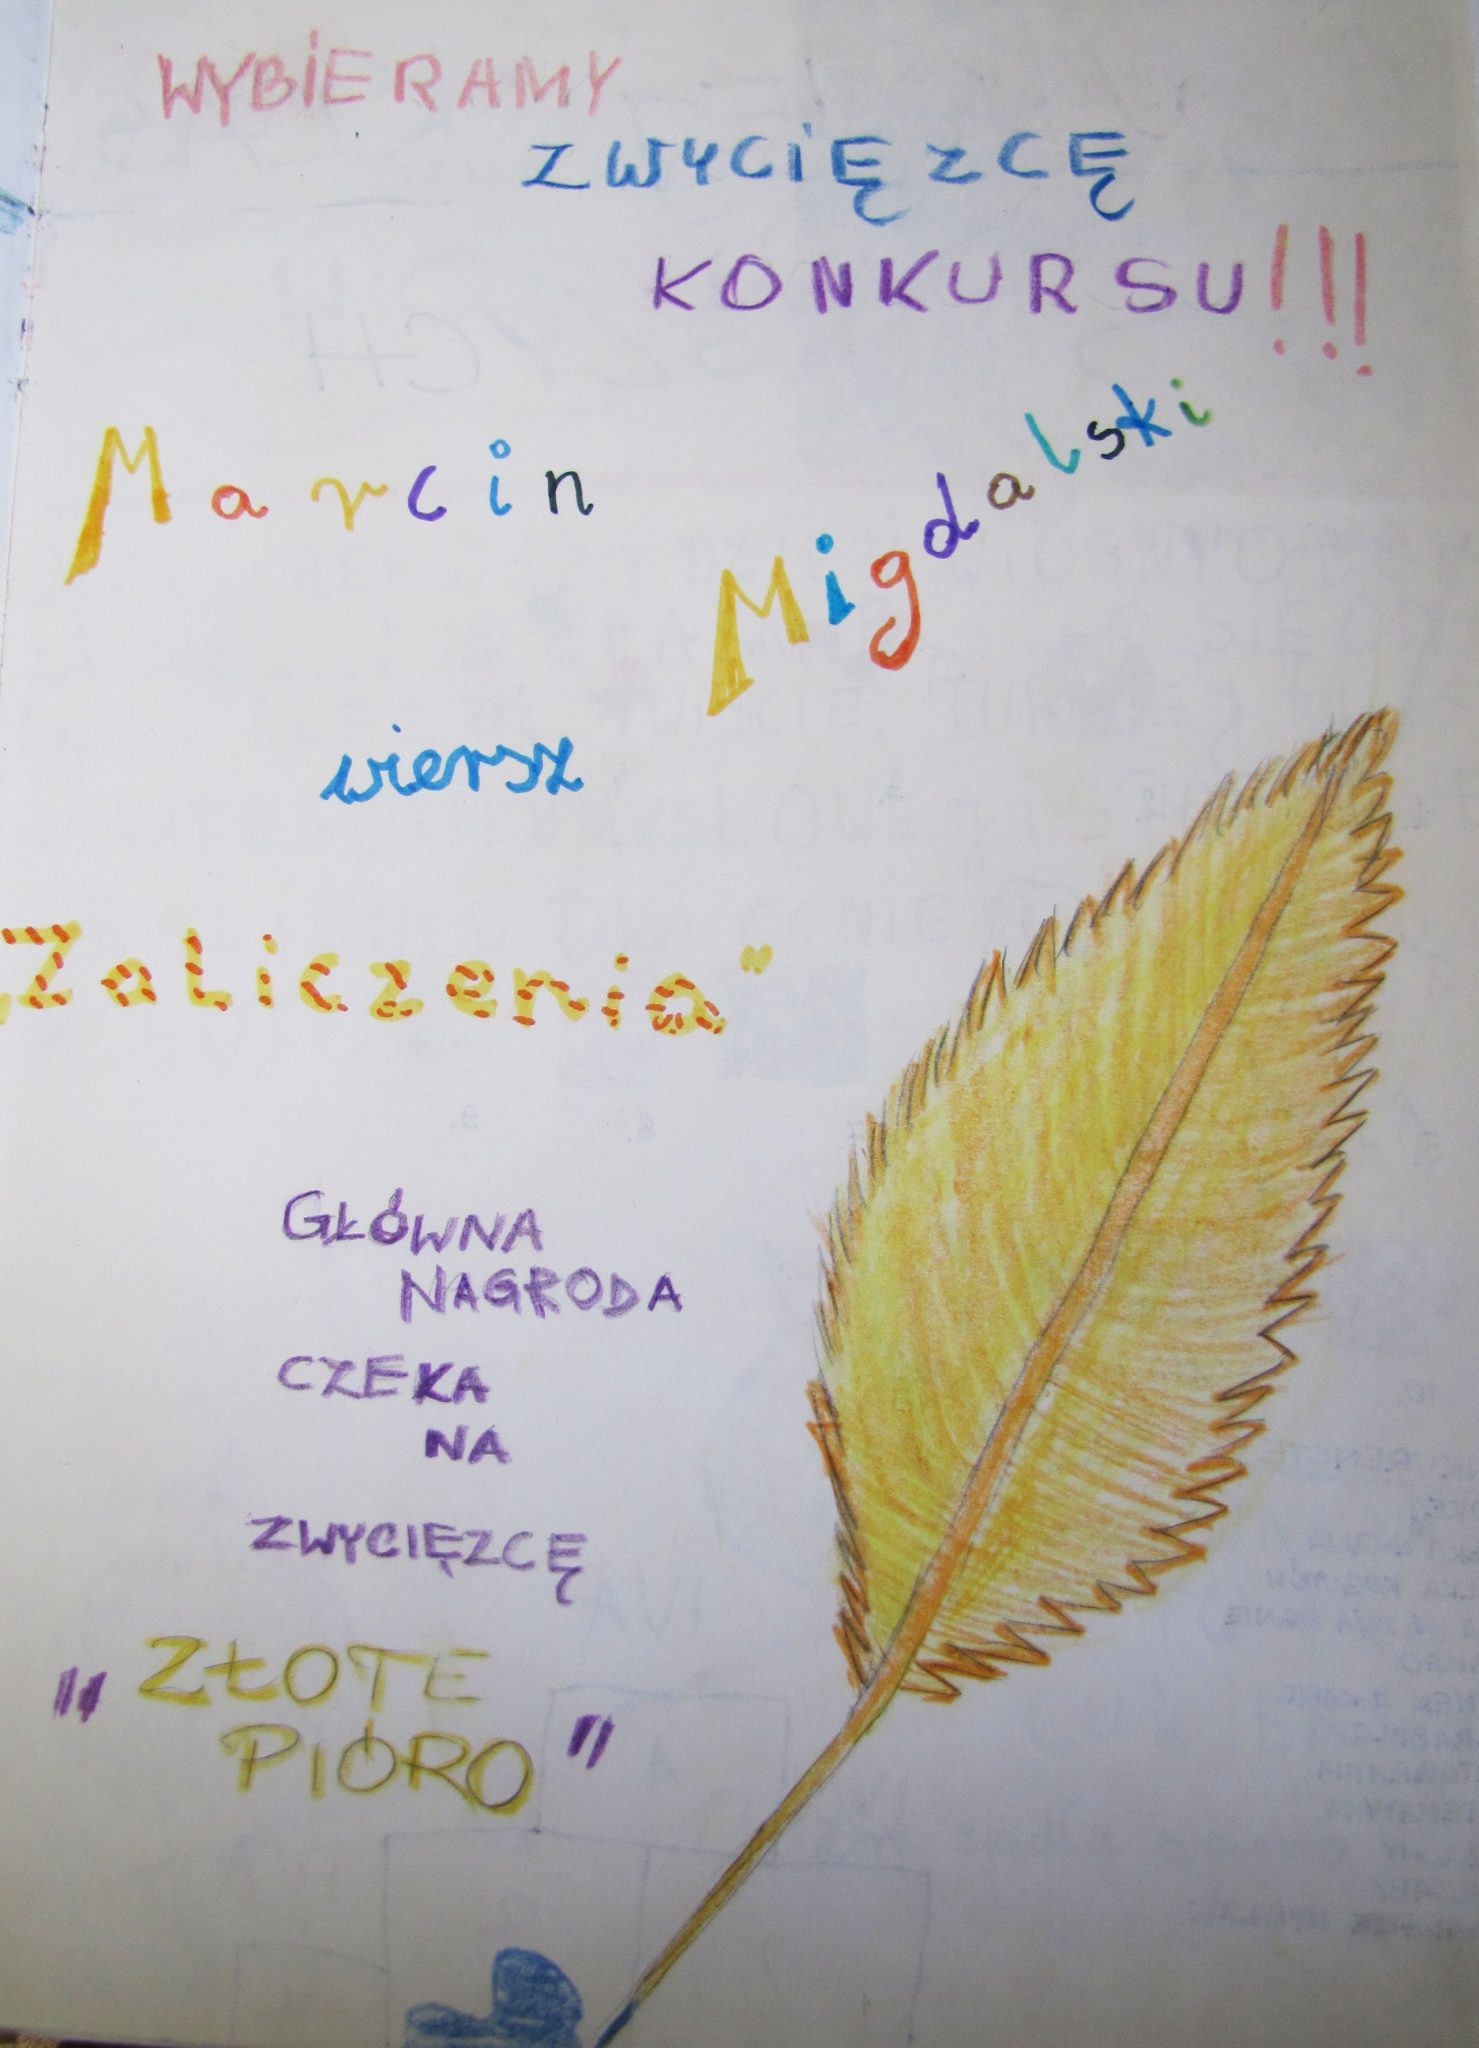 WYBIERAMY
ZWYCIĘZCĘ
KONKURSU!!!
Marcin
Migdalski
wiersz
„Zaliczenia"
GŁÓWNA
NAGRODA
CZEKA
NA
ZWYCIĘZCĘ
"ZŁOTE
PIÓRO"